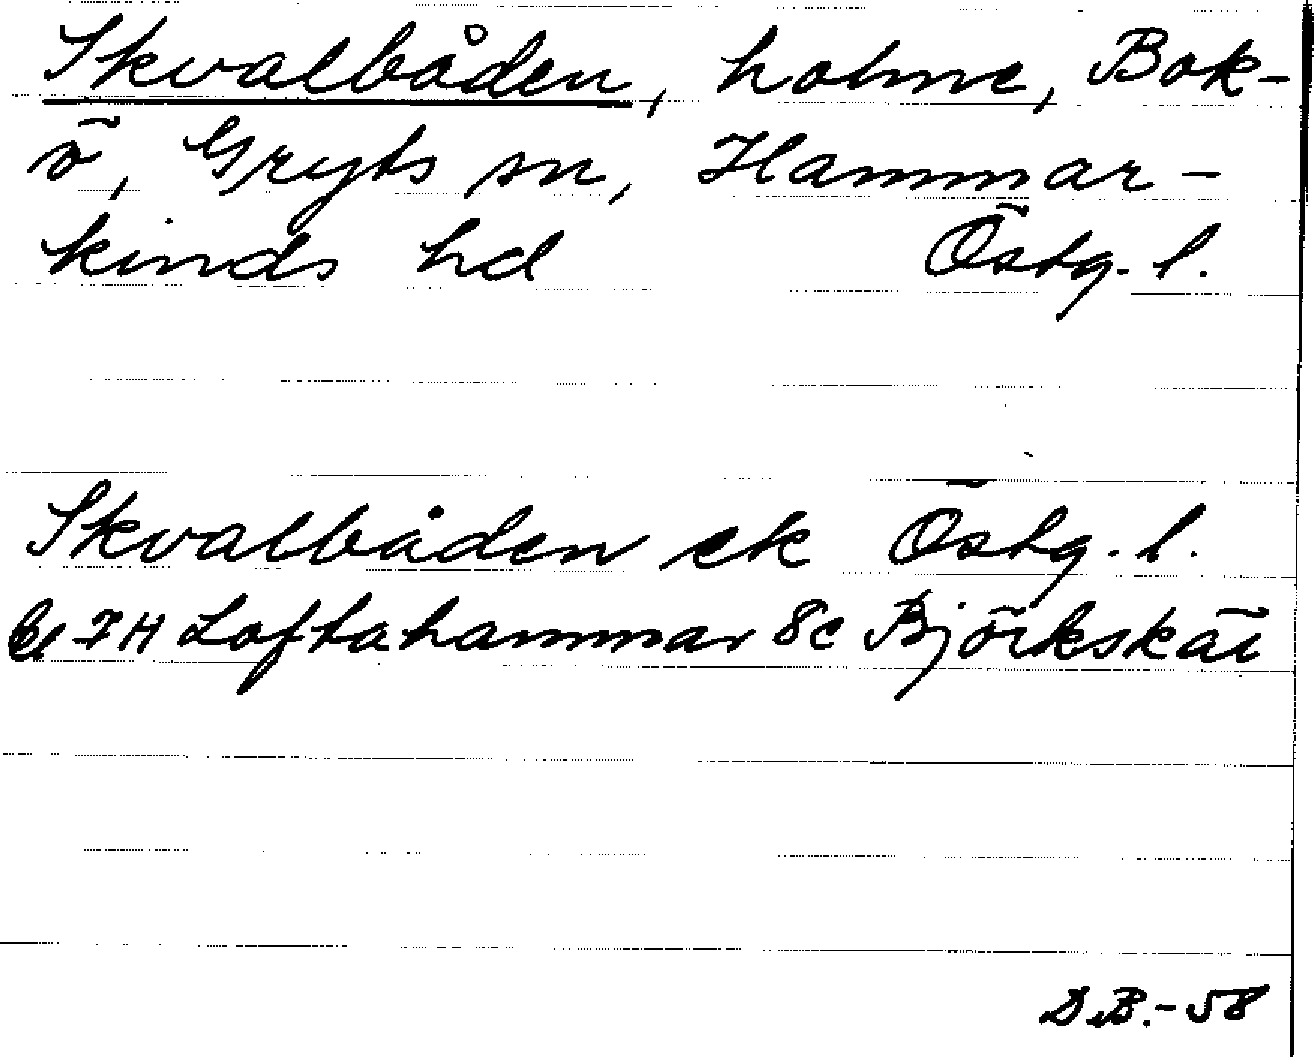 Skvalbåden, holme, Bok-
ö, Gryts sn, Hammar-
kinds hd Östg. l.
Skvalbåden ek Östg. l.
bl 7H Loftahammar 8c Björkskär
D.B.-58